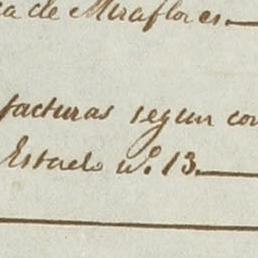 ca de Miraflores.
facturas segun con
Estado nº. 13.